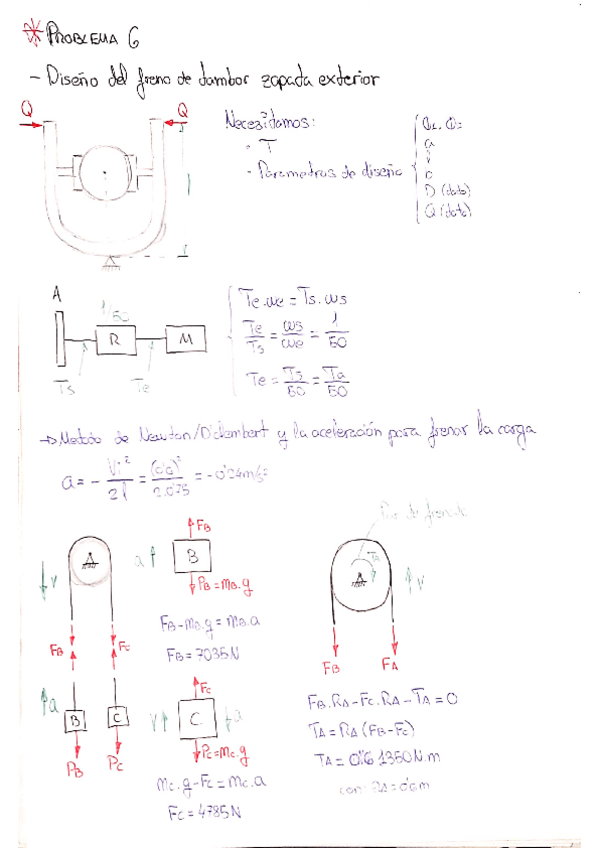 * PROBLEMA 6
- Diseño del freno de tambor zapata exterior
Q
Q
Necesitamos:
- T
- Parametros de diseño
a
b
c
D (dato)
Q (dato)
A
1/50
R
M
Ts
Te
Te.ωe = Ts.ωs
Te/Ts = ωs/ωe = 1/50
Te = Ts/50 = Ta/50
→ Metodo de Newton/D'alembert y la aceleración para frenar la carga
a = - Vi²/2l = (0'6)²/2.0'75 = -0'24m/s²
Par de frenado
v
FB
FC
a
B
C
PB
PC
a
FB
B
PB = mB.g
FB-mB.g = mB.a
FB = 7035N
v
FC
C
a
PC = mC.g
mC.g-FC = mC.a
FC = 4785N
TA
v
FB
FA
FB.RA-FC.RA-TA = 0
TA = RA (FB-FC)
TA = 0'6 1350N.m
con RA = 0'6m